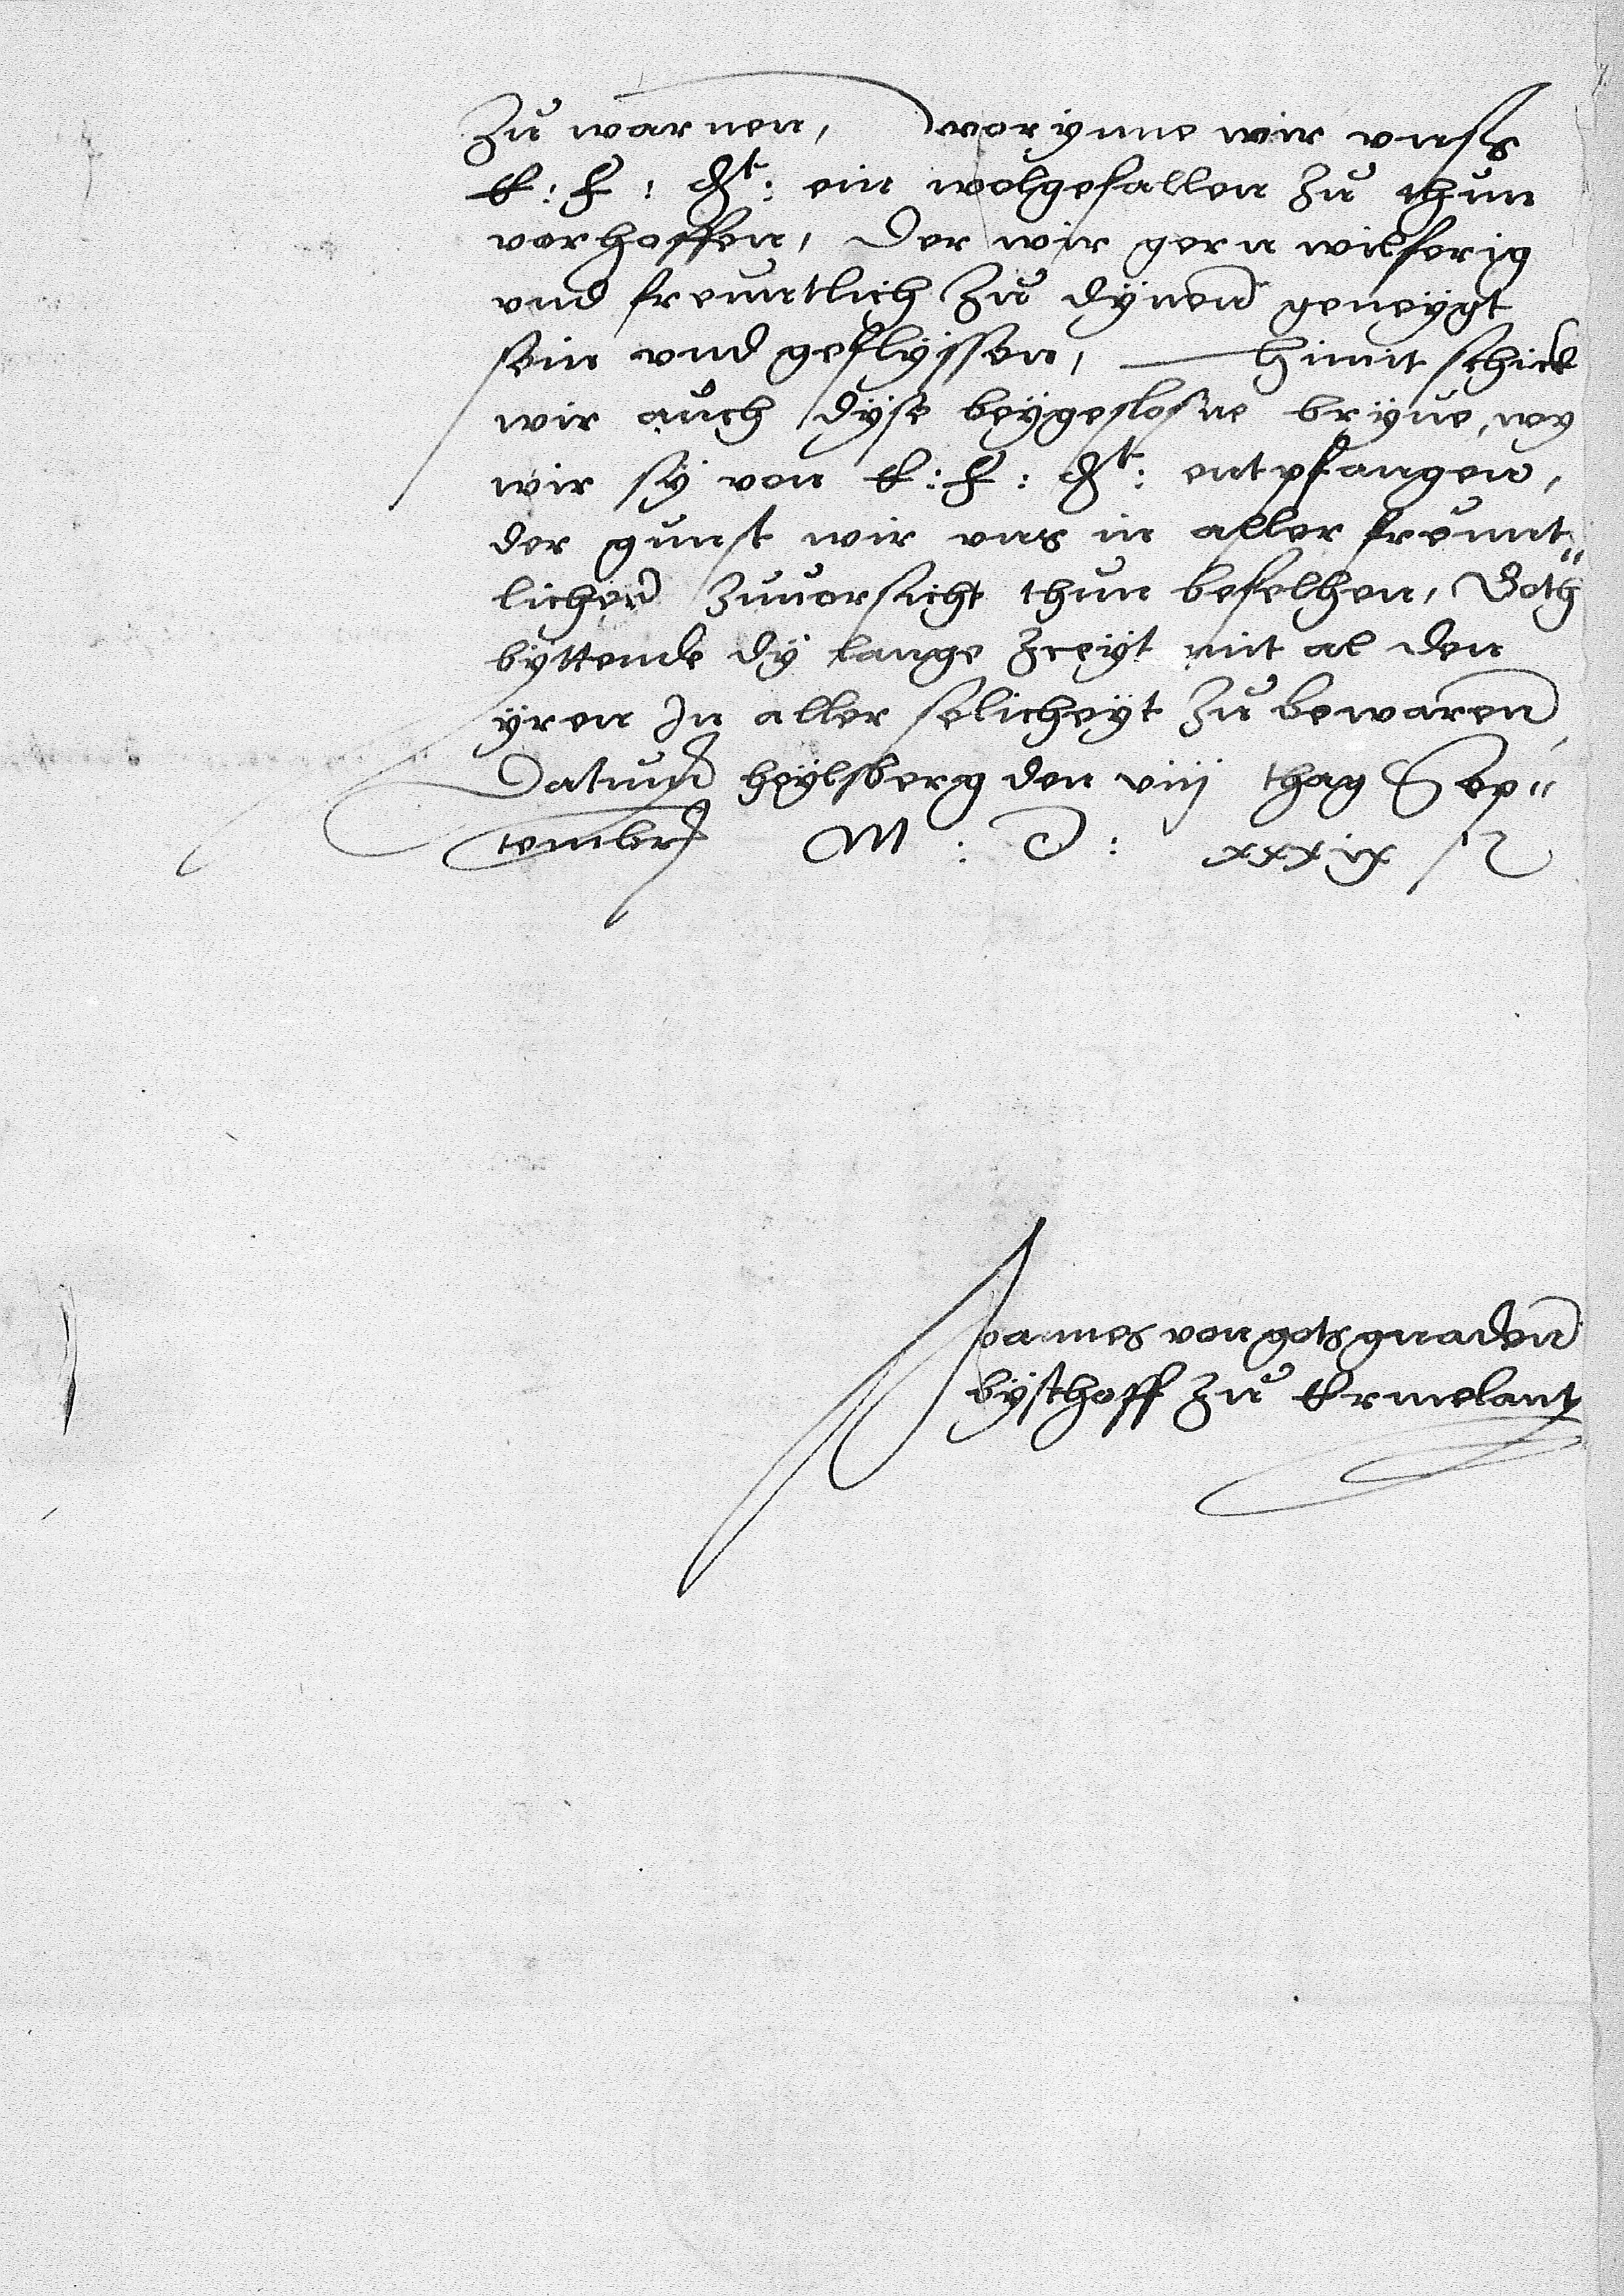 zu warnen, worynne wir vnss
E: F: G^t: ein wolgefallen zu thun
vorhoffen, Der wir gern wilferig
vnd freuntlich zu dynen geneygt
sein vnd geflyssen, Himit schick
wir auch dyse beygeslosne bryue, wy
wir sy von E: F: G^t: entpfangen,
der gunst wir vns in aller freunt"
lichen zuuorsicht thun befelhen, Goth
byttende dy lange zceyt mit al den
yren In aller selicheyt zu bewaren
Datum heylsberg den viij thag Sep"
tembr M: D: xxxix
Joannes von gots gnaden
bysthoff zu Ermelant